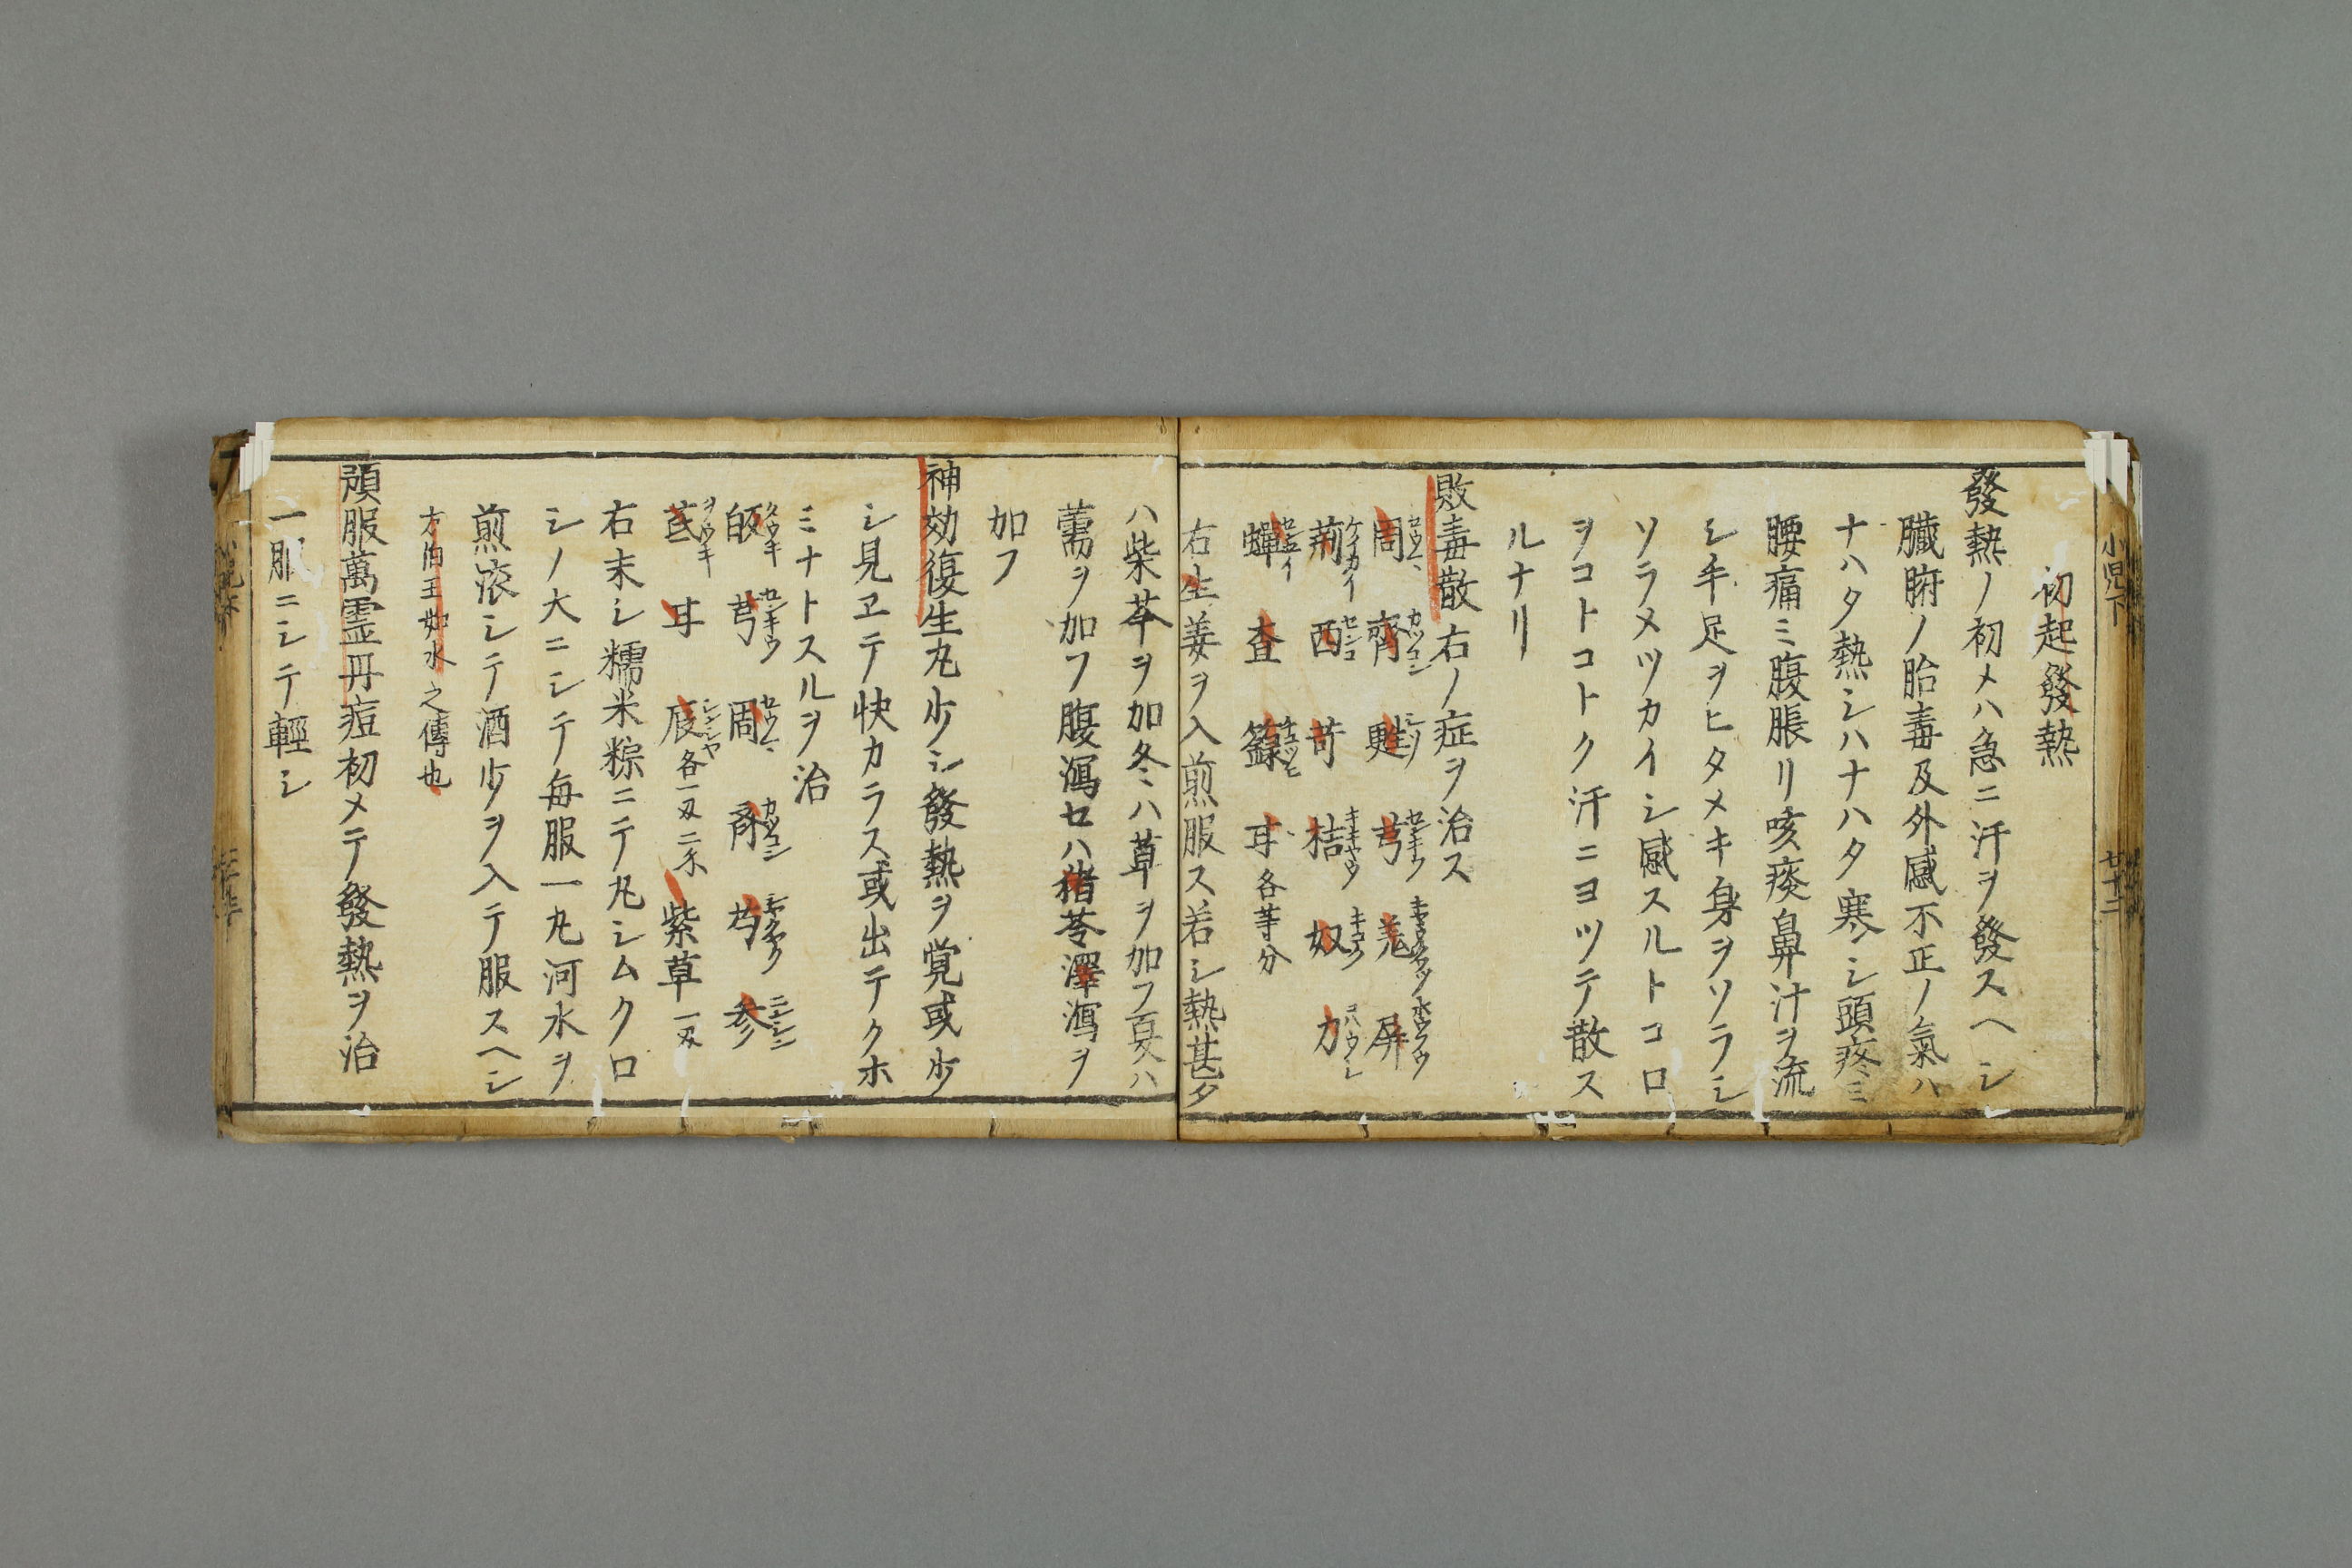 小児下
廿十二
初起發熱
發熱ノ初メハ急ニ汗ヲ發スヘシ
臓腑ノ胎毒及外感不正ノ氣ハ
ナハタ熱シハナハタ寒シ頭疼ミ
腰痛ミ腹脹リ咳痰鼻汁ヲ流
シ手足ヲヒタメキ身ヲソラシ
ソラメツカイシ感スルトコロ
ヲコトコトク汗ニヨツテ散ス
ルナリ
敗毒散右ノ症ヲ治ス
周 齊 甦 芎 羗 屏
荊 西 苛 桔 奴 力
蟬 査 籙 甘各等分
右生姜ヲ入煎服ス若シ熱甚タ
ハ柴芩ヲ加冬ハ草ヲ加フ夏ハ
薷ヲ加フ腹瀉セハ猪苓澤瀉ヲ
加フ
神効復生丸少シ發熱ヲ覚或少
シ見ヱテ快カラス或出テクホ
ミナトスルヲ治
皈 芎 周 齊 芍 参
芪 甘 辰各一匁二分 紫草一匁
右末シ糯米粽ニテ丸シムクロ
シノ大ニシテ毎服一丸河水ヲ
煎滾シテ酒少ヲ入テ服スヘシ
方伯王如水之傳也
預服萬霊丹痘初メテ發熱ヲ治
一服ニシテ輕シ